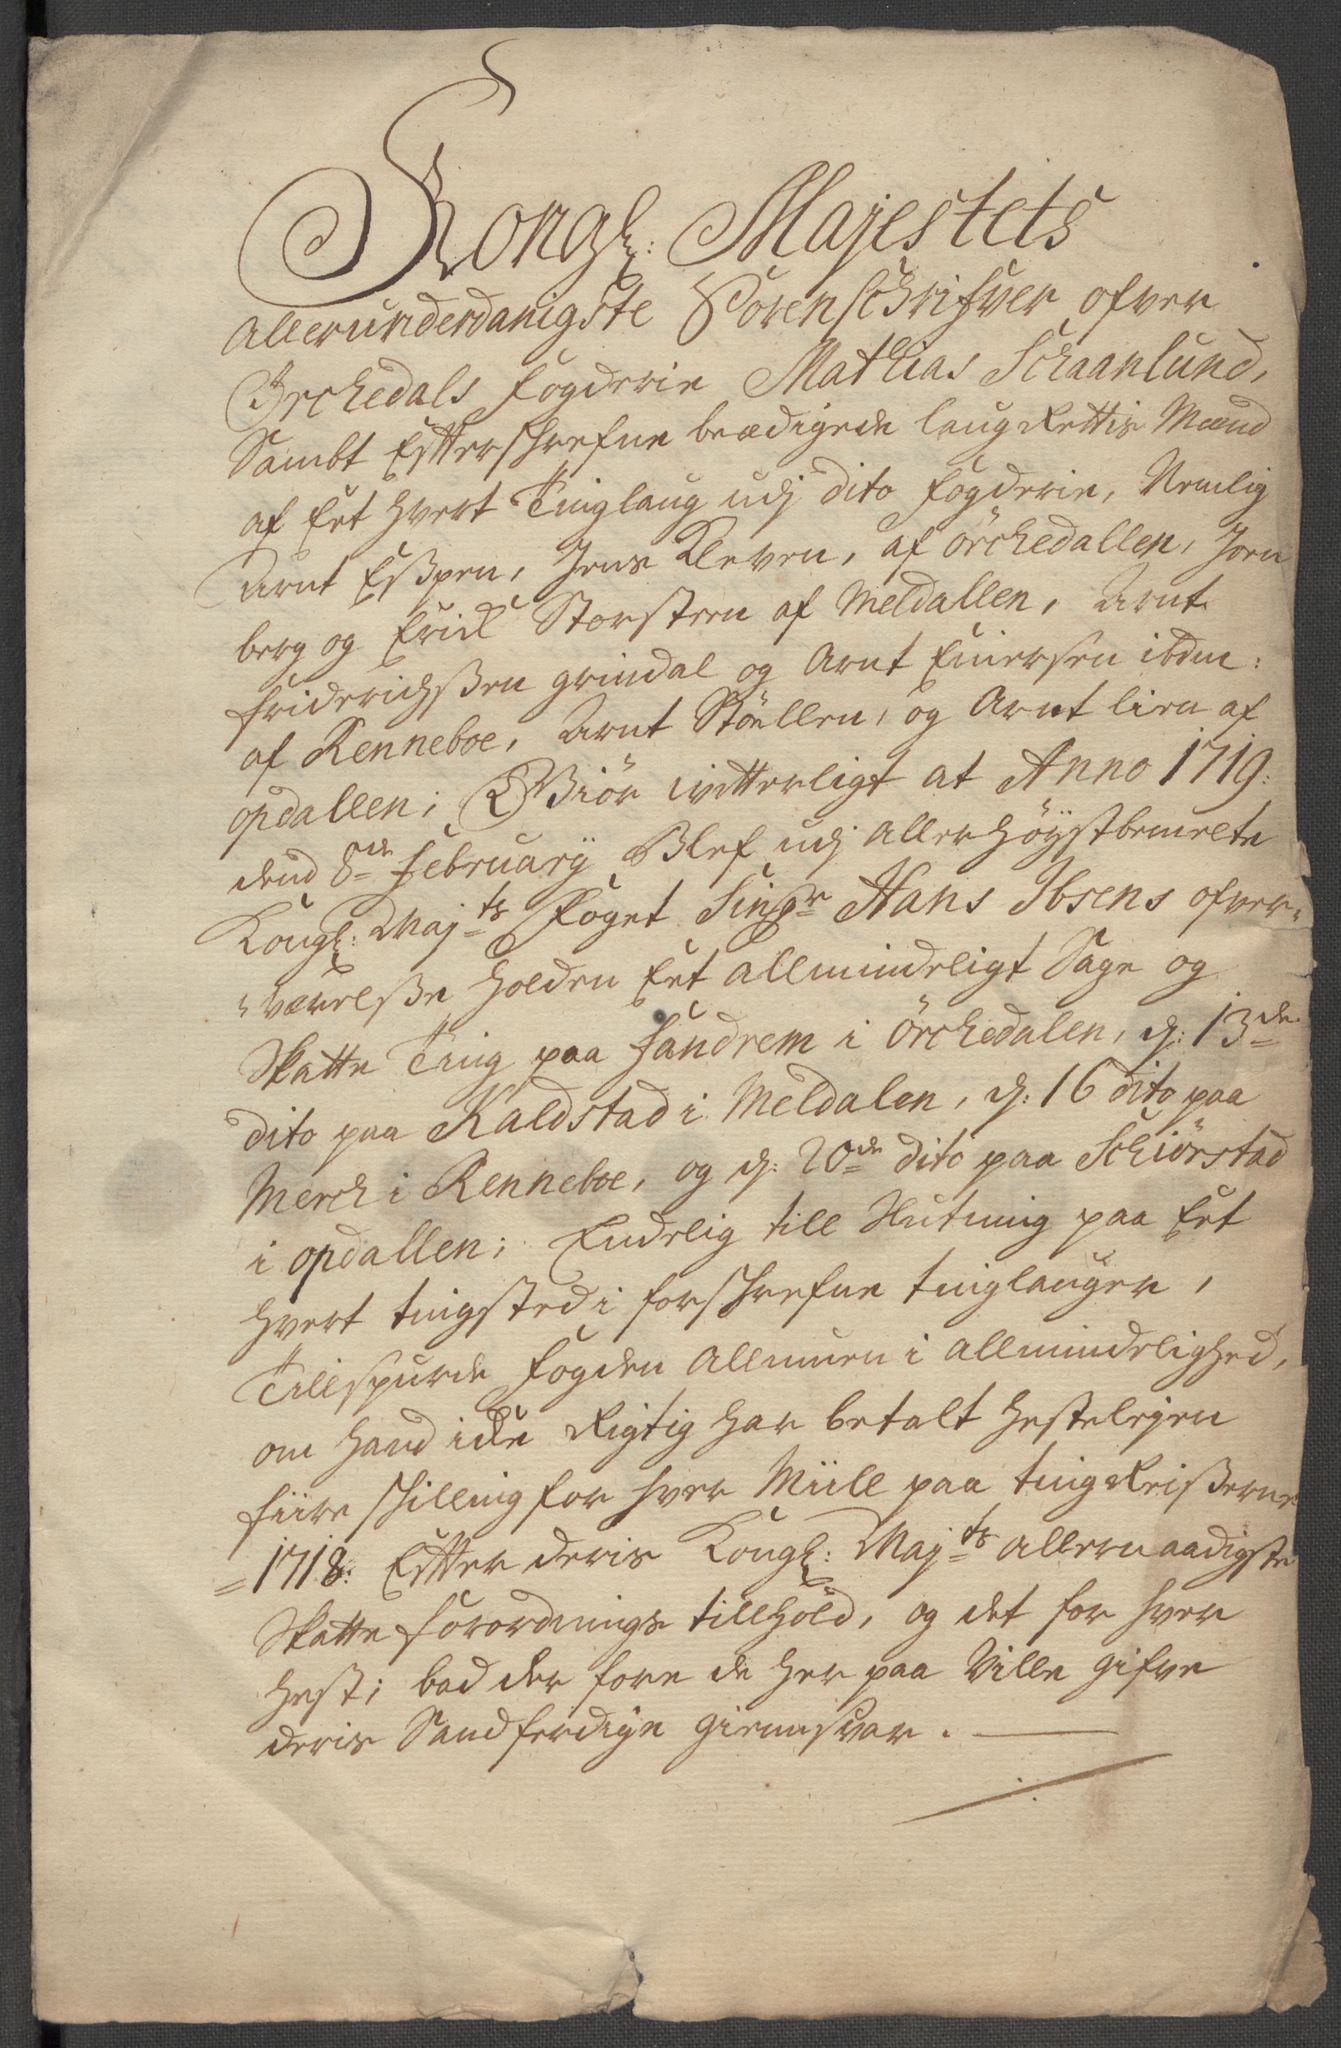 Kongl: Majestets
Allerunderdanigste Sorenschrifver ofver
Örchedals fogderie Mathias Schaanlund,
Sambt Effterschrefne beædigede laug Rettis Mænd
af Eet hvert Tinglaug udj dito fogderie, Nemlig
Arnt Espen, Jens Kleven, af Örchedallen, Joen
berg og Erick Storsteen af Meldallen, Arnt
friderichßen grindal og Arnt Einersen ibdm:
af Renneboe, Arnt Stöllen, og Arnt lien af
opdallen; Giör witterligt at Anno 1719:
dend 8de february Blef udj Allerhöystbemelte
Kongl: Majts Foget Singr Hans Ibsens ofver=
=værelße holden Eet allmindeligt Sage og
Skatte Ting paa fandrem i Örchedalen, d: 13de
dito paa Kaldstad i Meldalen, d: 16 dito paa
Merch i Renneboe, og d: 20de dito paa Schiörstad
i opdallen; Endelig till Slutning paa Eet
hvert tingsted i forschrefne tinglauger,
Tillspurde fogden Allmuen i allmindelighed,
om hand icke Rigtig har betalt hestelejen
fiire schilling for hver Miill paa ting Reißerne
=1718: Effter deris Kongl: Majts allernaadigste
Skatte forordnings tillhold, og det for hver
hest; bad der fore de her paa Ville gifve
deris Sandferdige giennsvar.